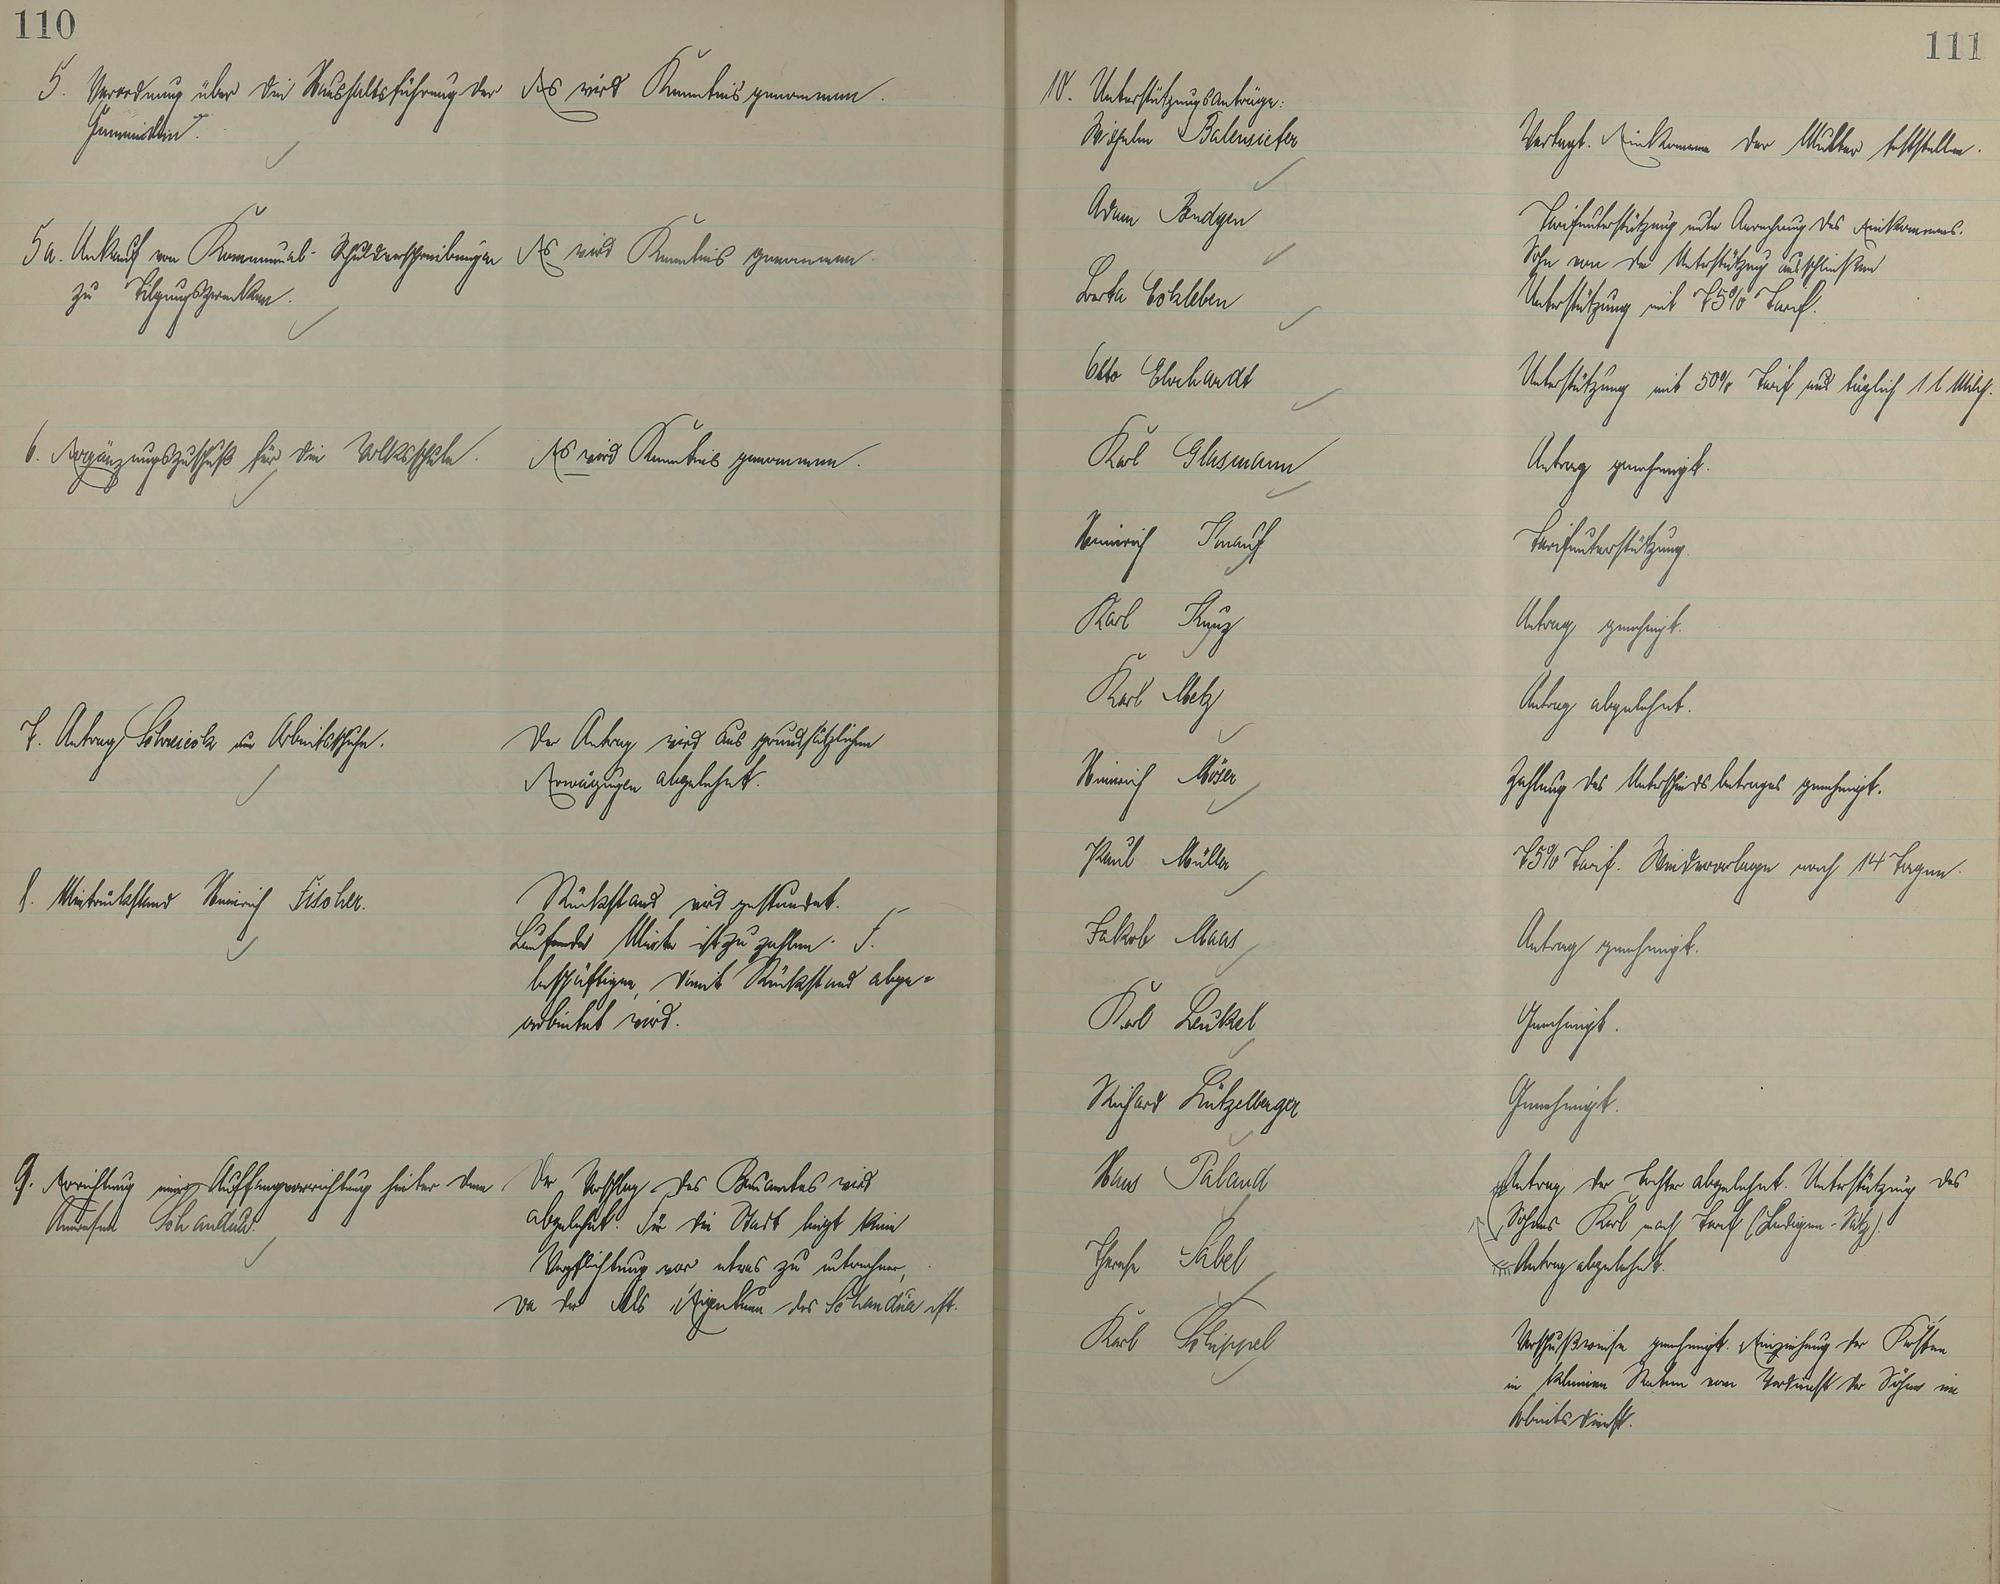 110
5. Verordnung über die Haushaltsführung der
Gemeinden.
Es wird Kenntnis genommen.
5a. Ankauf von Kommunal-Schuldverschreibungen
zu Tilgungszwecken.
Es wird Kenntnis genommen.
6. Ergänzungszuschuß für die Volksschule.
Es wird Kenntnis genommen.
7. Antrag um Arbeitsschuhe.
Der Antrag wird aus grundsätzlichen
Erwägungen abgelehnt.
8. Mietrückstand Heinrich Fischer.
Rückstand wird gestundet.
Laufende Miete ist zu zahlen. F.
beschäftigen, damit Rückstand abge-
arbeitet wird.
9. Errichtung einer Auffangvorrichtung hinter dem
Anwesen Schandua.
Der Vorschlag des Bauamtes wird
abgelehnt. Für die Stadt liegt keine
Verpflichtung vor etwas zu unternehmen,
da der Fels Eigentum des Schandua ist.
111
10. Unterstützungsanträge:
Wilhelm Balensiefer
Vertagt. Einkommen der Mutter feststellen.
Adam Bndgen
Tarifunterstützung unter Anrechnung des Einkommens.
Sohn von der Unterstützung ausschließen
Berta Eckleben
Unterstützung mit 75% Tarif.
Otto Ehrhardt
Unterstützung mit 50% Tarif und täglich 1 l Milch.
Karl Glasmann
Antrag genehmigt.
Heinrich Knauf
Tarifunterstützung.
Karl
Antrag genehmigt.
Karl Metz
Antrag abgelehnt.
Heinrich Möser
Zahlung des Unterschiedsbetrages genehmigt.
Paul Müller
75% Tarif. Wiedervorlage nach 14 Tagen.
Jakob Maas
Antrag genehmigt.
Karl Leukel
Genehmigt.
Richard Lützelberger
Genehmigt.
Hans Paland
Antrag der Tochter abgelehnt. Unterstützung des
Sohnes Karl nach Tarif (Ledigen-Satz).
Therese Sabel
Antrag abgelehnt.
Karl Schippel
Vorschußweise genehmigt. Einziehung der Kosten
in kleinen Raten vom Verdienst der Söhne im
Arbeitsdienst.